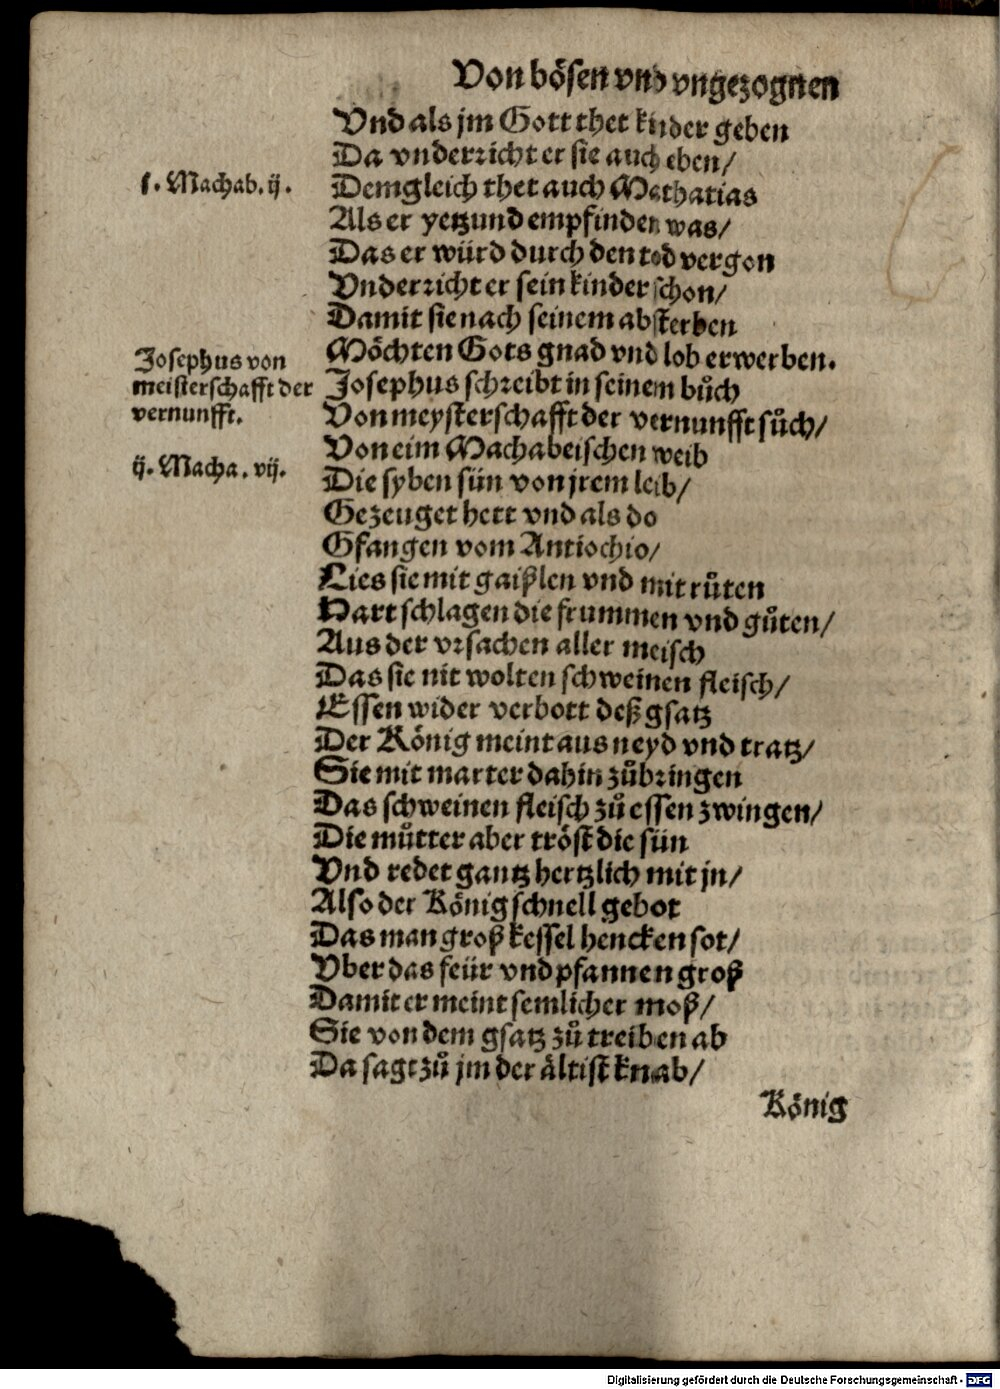 Von bösen vnd vngezognen
Vnd als jm Gott thet kinder geben
Da vnderricht er sie auch eben/
1. Machab. ij.
Demgleich thet auch Mathatias
Als er yetzund empfinden was/
Das er würd durch den tod vergon
Vnderricht er sein kinder schon/
Damit sie nach seinem absterben
Möchten Gots gnad vnd lob erwerben.
Josephus von
meisterschafft der
vernunfft.
Josephus schreibt in seinem bůch
Von meysterschafft der vernunfft sůch/
Von eim Machabeischen weib
ij. Macha. vij.
Die syben sün von jrem leib/
Gezeuget hett vnd als do
Gfangen vom Antiochio/
Lies sie mit gaißlen vnd mit růten
Hart schlagen die frummen vnd gůten/
Aus der vrsachen aller meisch
Das sie nit wolten schweinen fleisch/
Essen wider verbott deß gsatz
Der König meint aus neyd vnd tratz/
Sie mit marter dahin zůbringen
Das schweinen fleisch zů essen zwingen/
Die můtter aber tröst die sün
Vnd redet gantz hertzlich mit jn/
Also der König schnell gebot
Das man groß kessel hencken sot/
Vber das feür vnd pfannen groß
Damit er meint semlicher moß/
Sie von dem gsatz zů treiben ab
Da sagt zů jm der ältist knab/
König
Digitalisierung gefördert durch die Deutsche Forschungsgemeinschaft - DFG